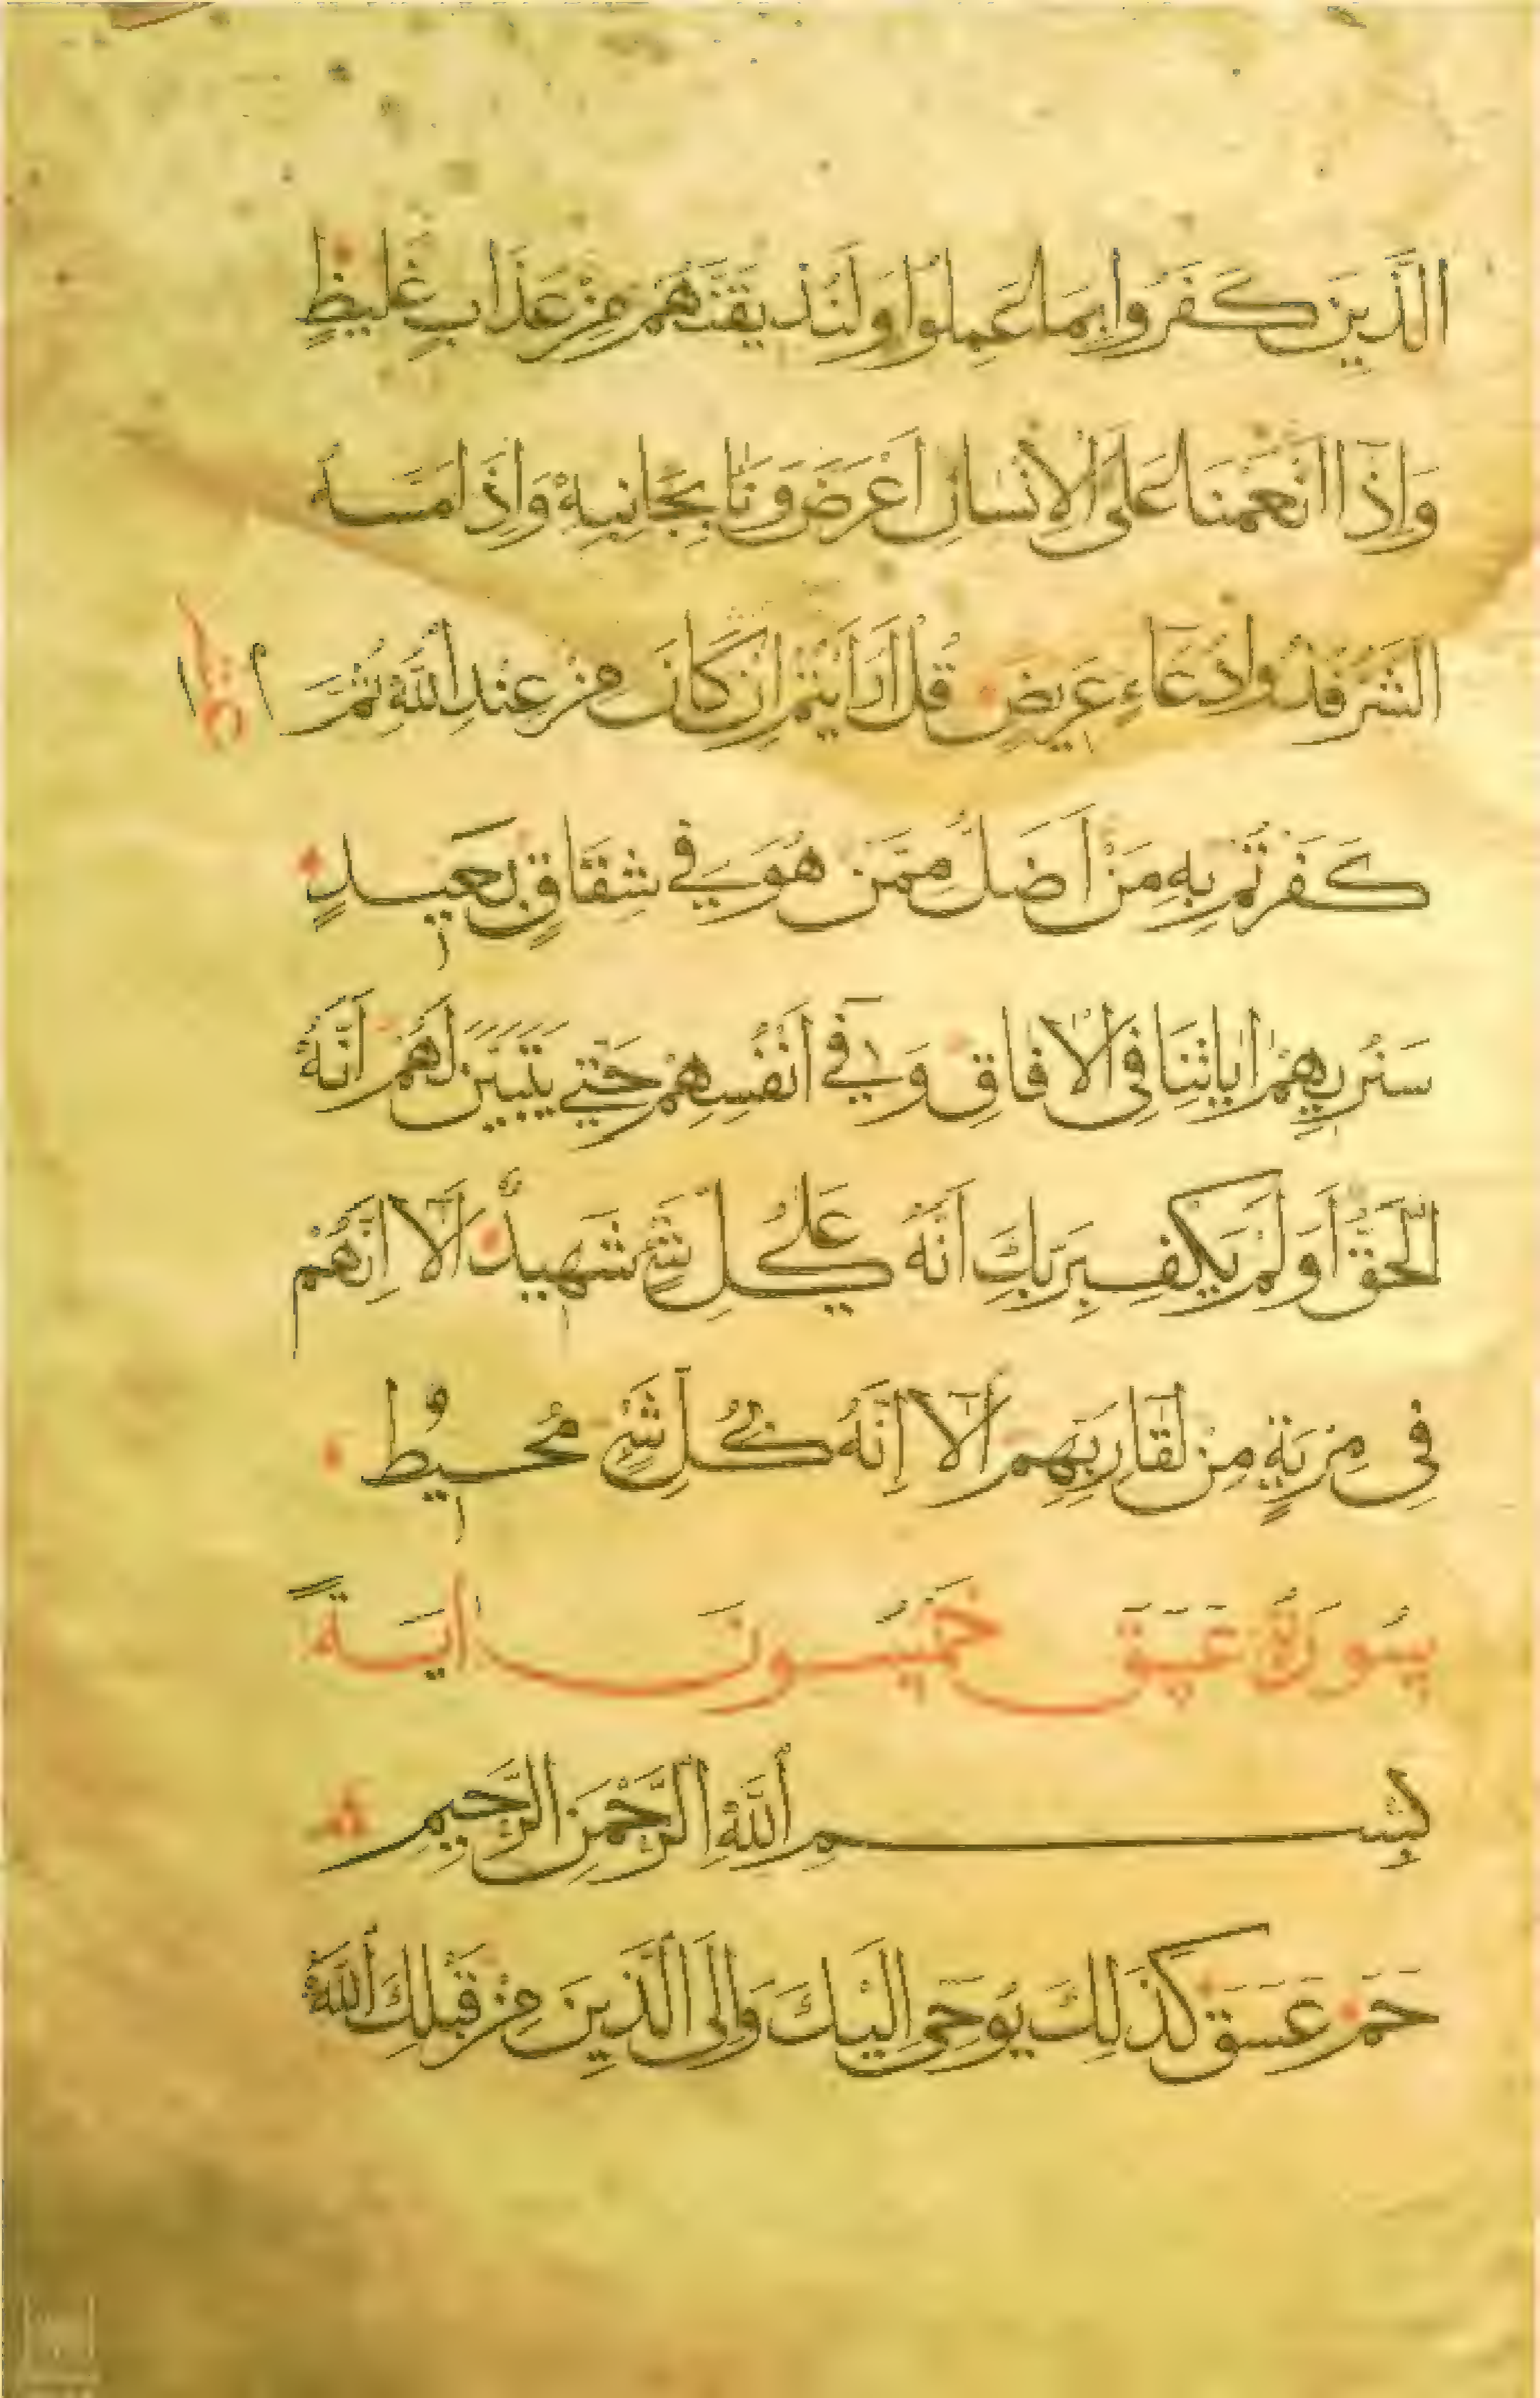 الَّذِينَ كَفَرُوا بِمَا عَمِلُوا وَلَنُذِيقَنَّهُمْ مِنْ عَذَابٍ غَلِيظٍ
وَإِذَا أَنْعَمْنَا عَلَى الْإِنْسَانِ أَعْرَضَ وَنَأَ بِجَانِبِهِ وَإِذَا مَسَّهُ
الشَّرُّ فَذُوا دُعَاءٍ عَرِيضٍ قُلْ أَرَأَيْتُمْ إِنْ كَانَ مِنْ عِنْدِ اللَّهِ ثُمَّ
كَفَرْتُمْ بِهِ مَنْ أَضَلُّ مِمَّنْ هُوَ فِي شِقَاقٍ بَعِيدٍ
سَنُرِيهِمْ ايَاتِنَا فِي الْافَاقِ وَفِي أَنْفُسِهِمْ حَتَّى يَتَبَيَّنَ لَهُمْ أَنَّهُ
الْحَقُّ أَوَلَمْ يَكْفِ بِرَبِّكَ أَنَّهُ عَلَى كُلِّ شَيْءٍ شَهِيدٌ أَلَا إِنَّهُمْ
فِي مِرْيَةٍ مِنْ لِقَاءِ رَبِّهِمْ أَلَا إِنَّهُ بِكُلِّ شَيْءٍ مُحِيطٌ
سُورَةُ عَسَقَ خَمْسُونَ ايَةً
بِسْمِ اللَّهِ الرَّحْمَنِ الرَّحِيمِ
حَمَ عَسَقَ كَذَلِكَ يُوحَى إِلَيْكَ وَإِلَى الَّذِينَ مِنْ قَبْلِكَ اللَّهُ